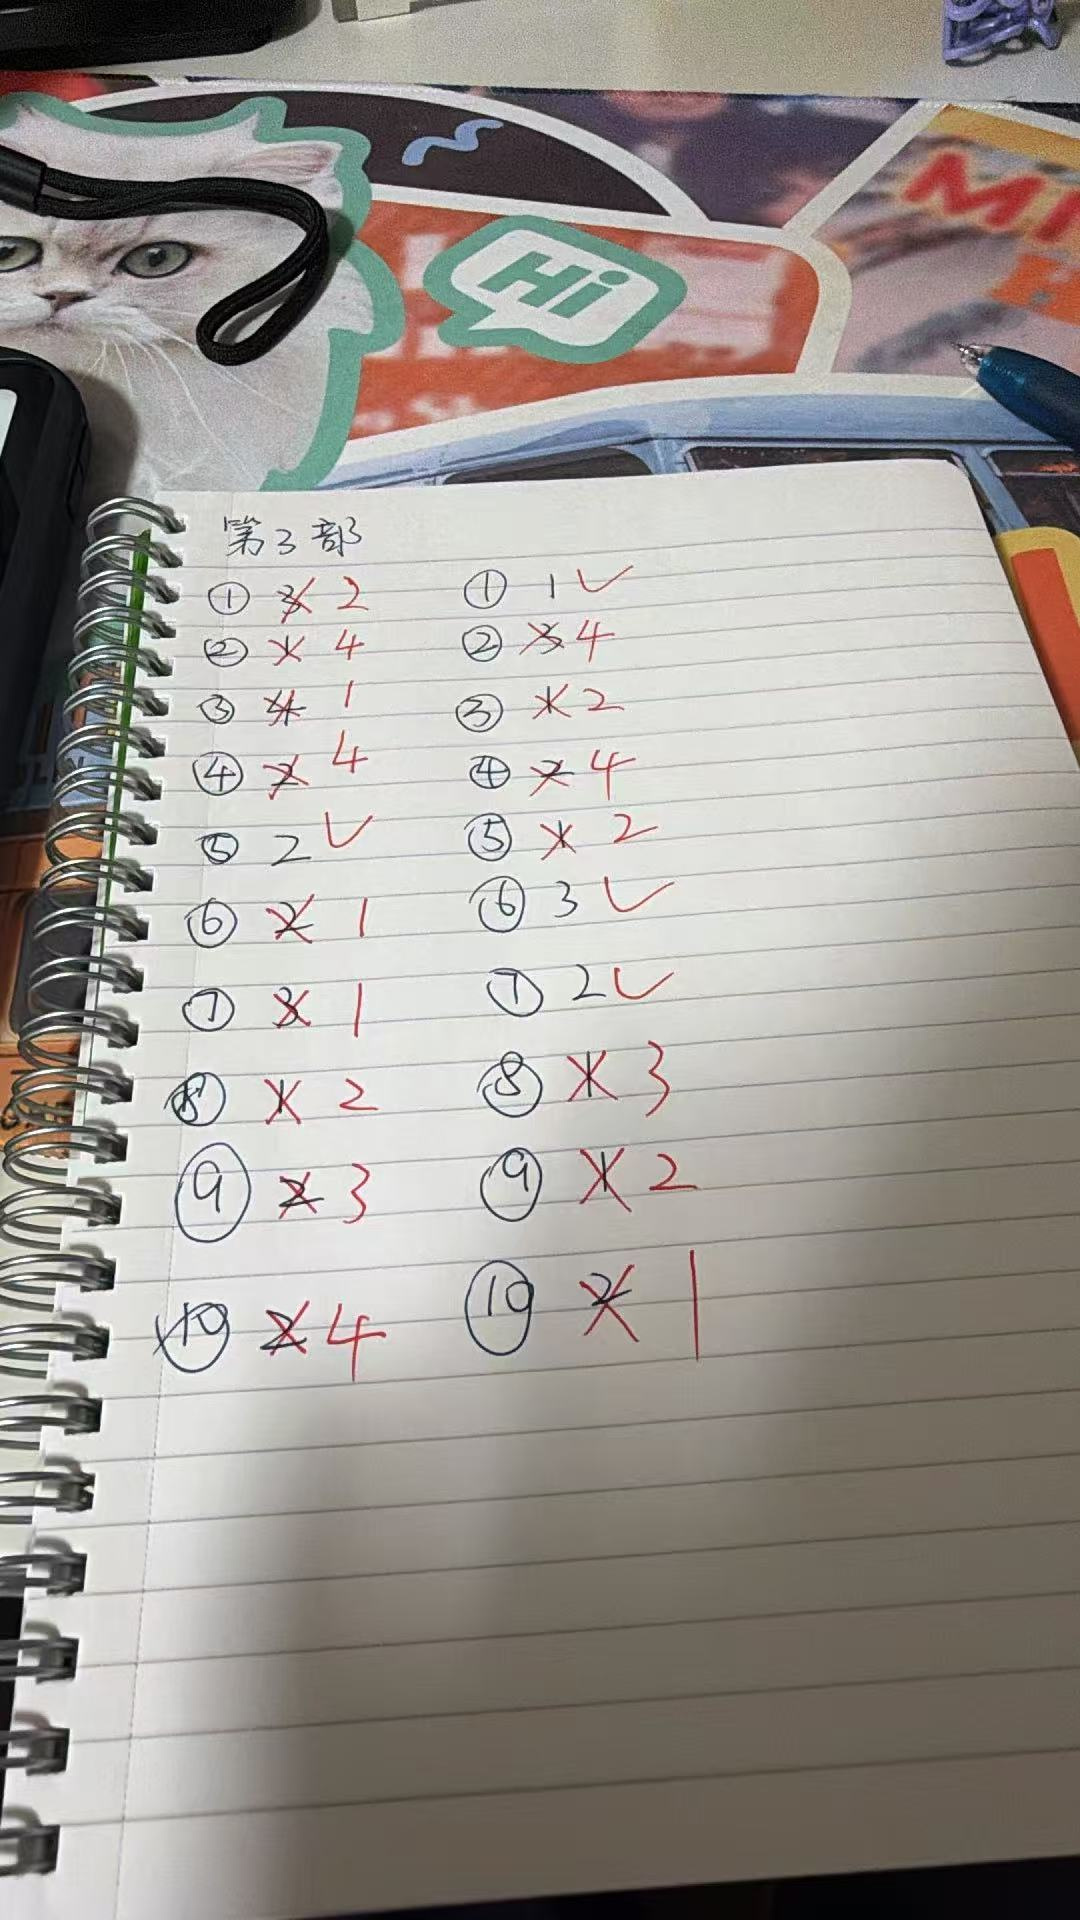 Hi
MI
第3部
① 3 2 ① 1 ✓
② 1 4 ② 3 4
③ 4 1 ③ 1 2
④ 2 4 ④ 2 4
⑤ 2 ✓ ⑤ 1 2
⑥ 2 1 ⑥ 3 ✓
⑦ 3 1 ⑦ 2 ✓
⑧ 1 2 ⑧ 1 3
⑨ 2 3 ⑨ 1 2
⑩ 2 4 ⑩ 2 1